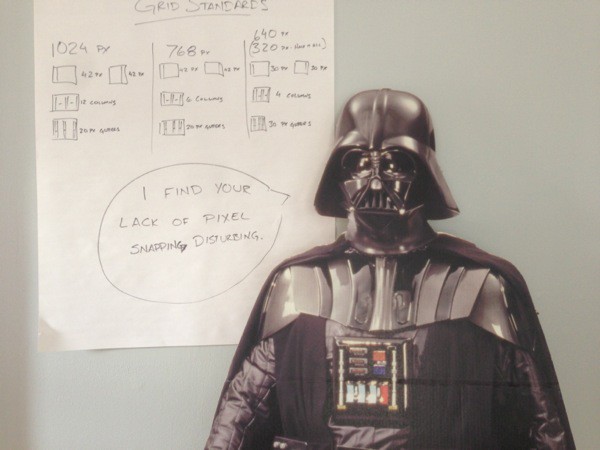 GRID STANDARDS
1024 PX
42 PX 42 PX
12 COLUMNS
20 PX GUTTERS
768 PX
42 PX 42 PX
20 PX GUTTERS
640 PX
(320 PX
30 PX 30 PX
4 COLUMNS
30 PX GUTTERS
I FIND YOUR
LACK OF PIXEL
SNAPPING DISTURBING.